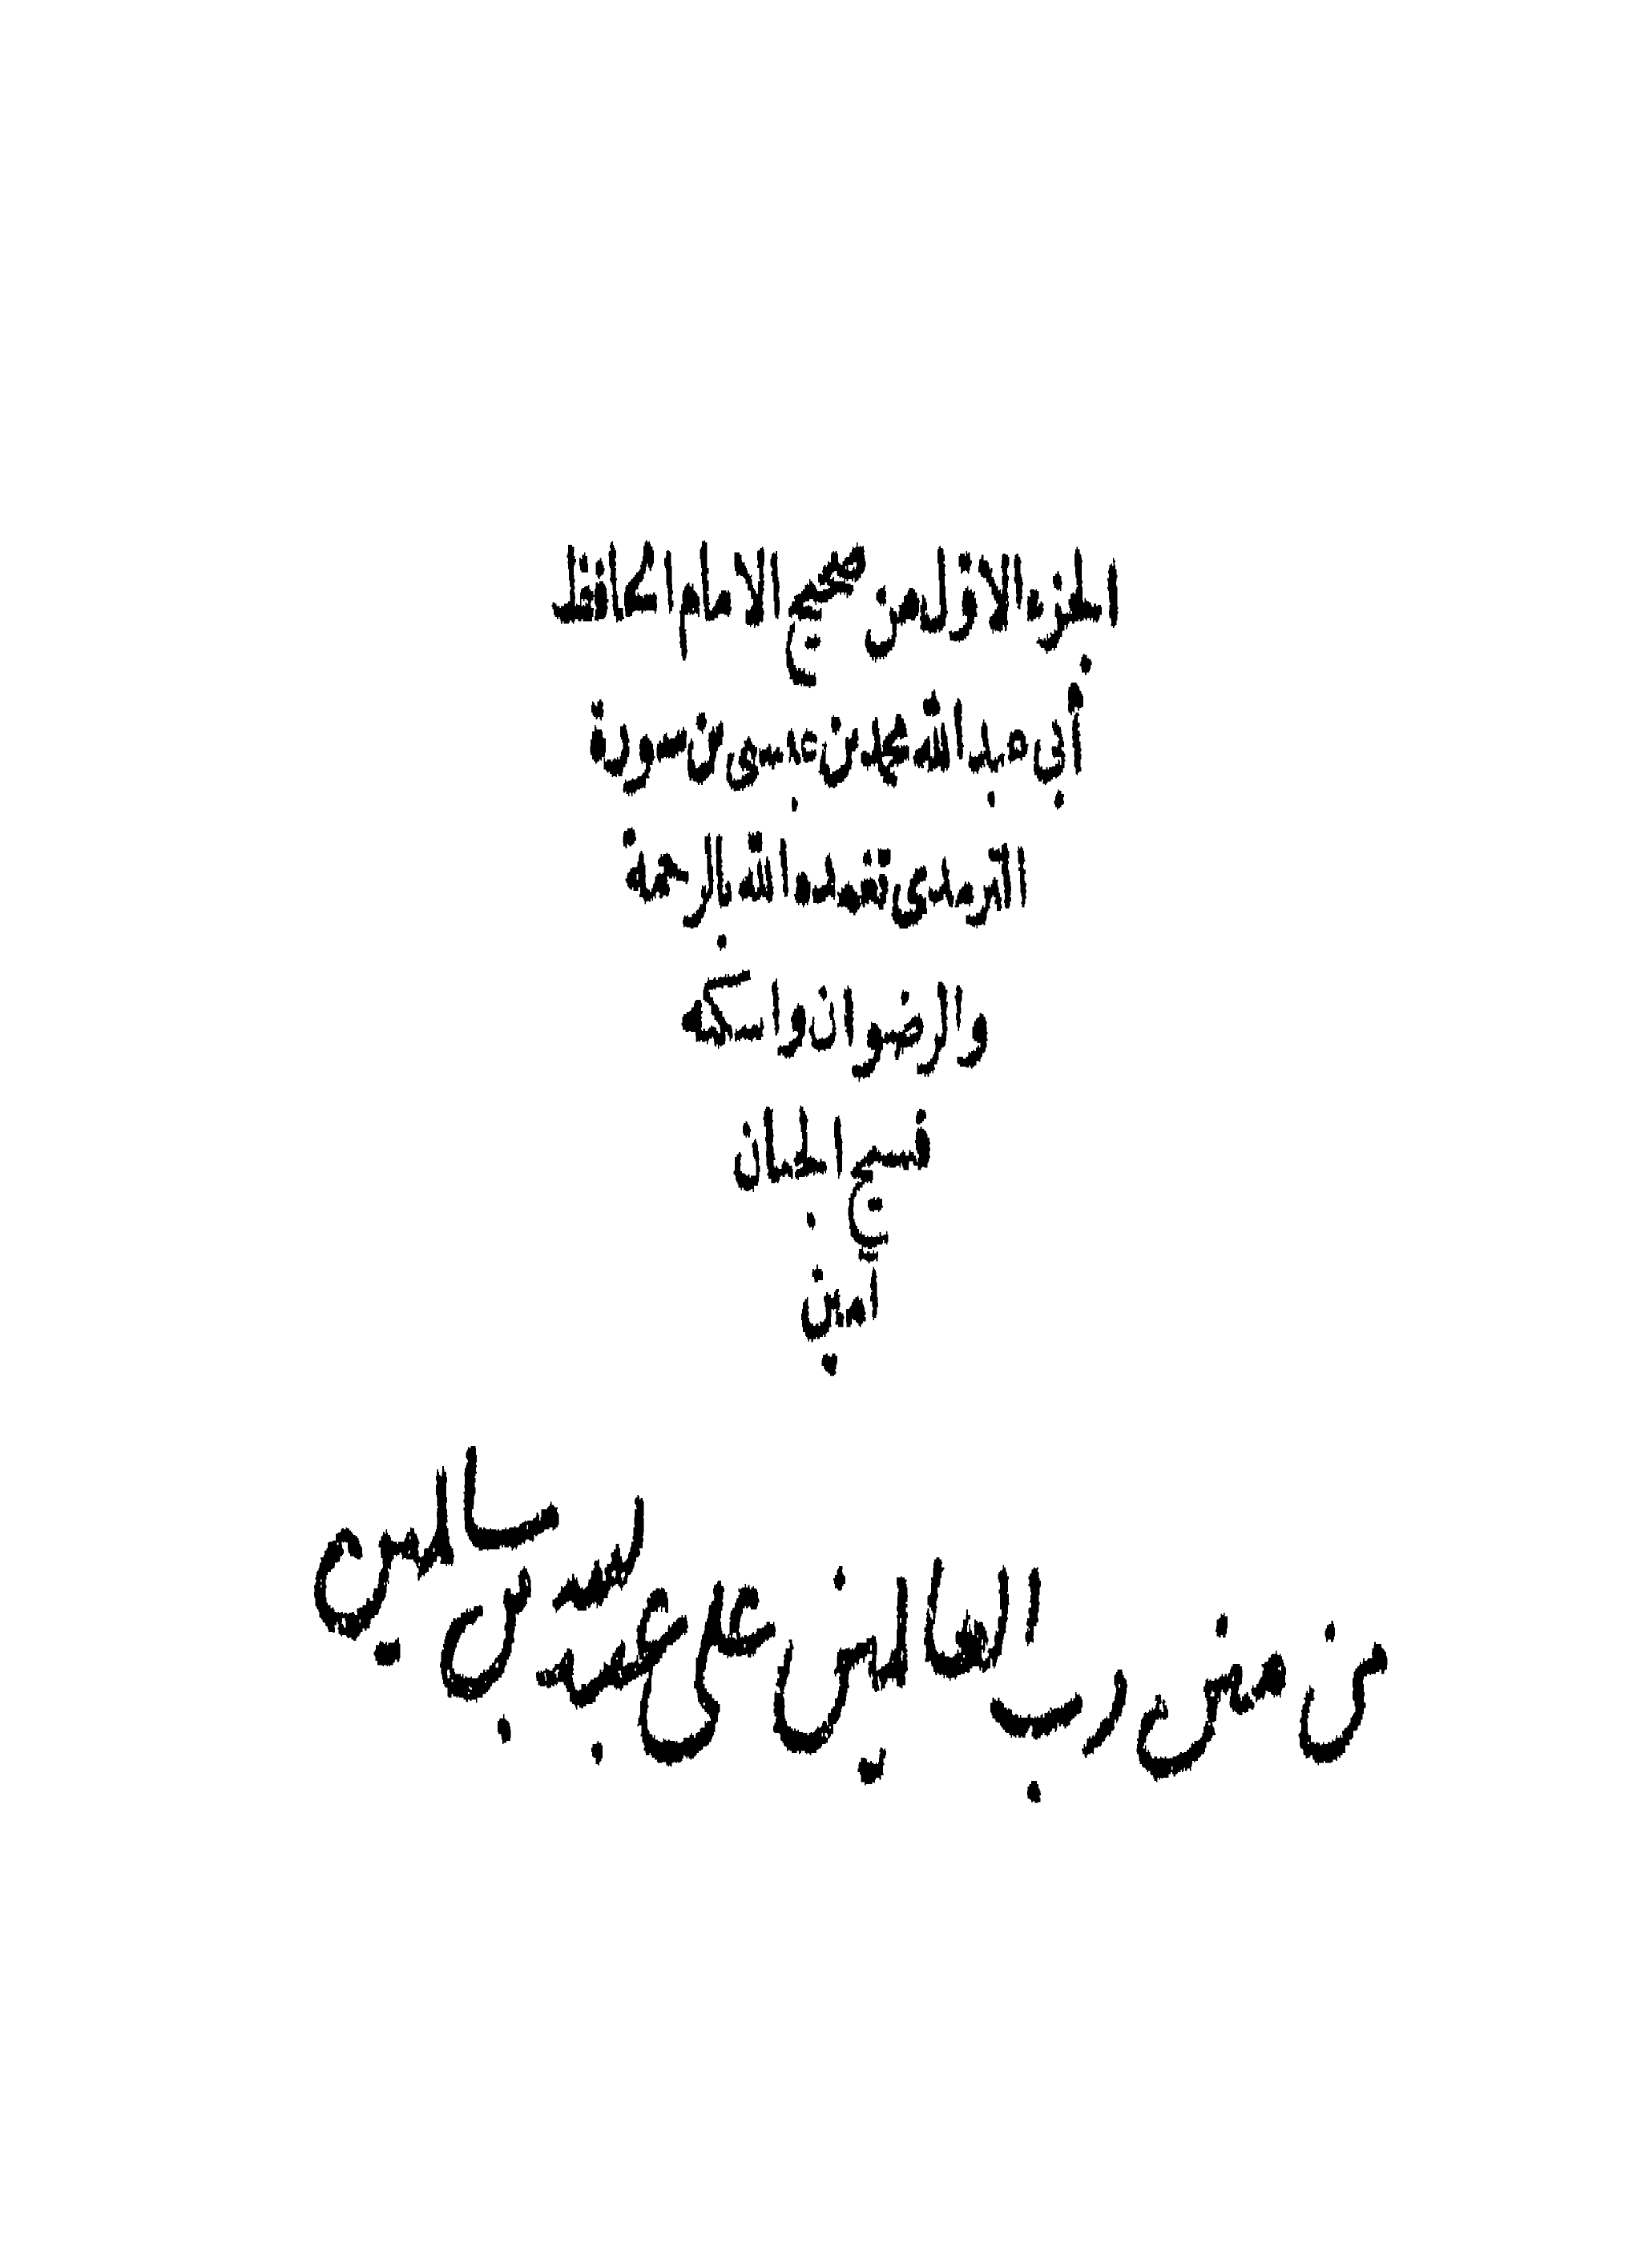 الجزء الاوّل من صحيح الامام الحافظ
أبي عبد الله محمد بن عيسى بن سورة
الترمذى تغمده الله بالرحمة
والرضوان واسكنه
فسيح الجنان
آمين
من منن رب العالمين على عبده بن سالمين